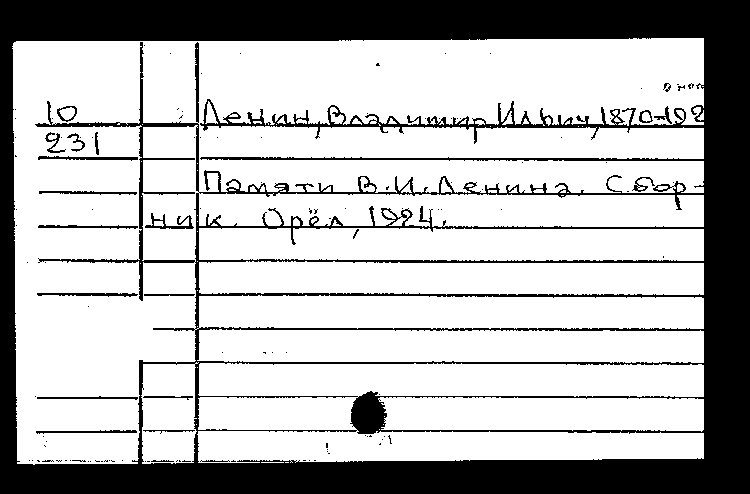 10 Ленин, Владимир Ильич, 1870-192
231
Памяти В.И.Ленина. Сбор-
ник. Орёл, 1924.